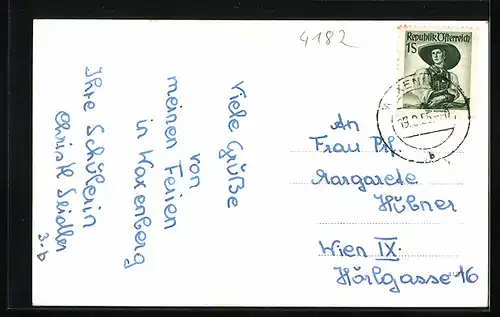 4182
Republik Österreich
1S
Viele Grüße
von
meinen Ferien
in Waxenberg
Ihre Schülerin
Christl Seidler
3.b
An
Frau Prf.
Margarete
Hübner
Wien IX.
Hörlgasse 16